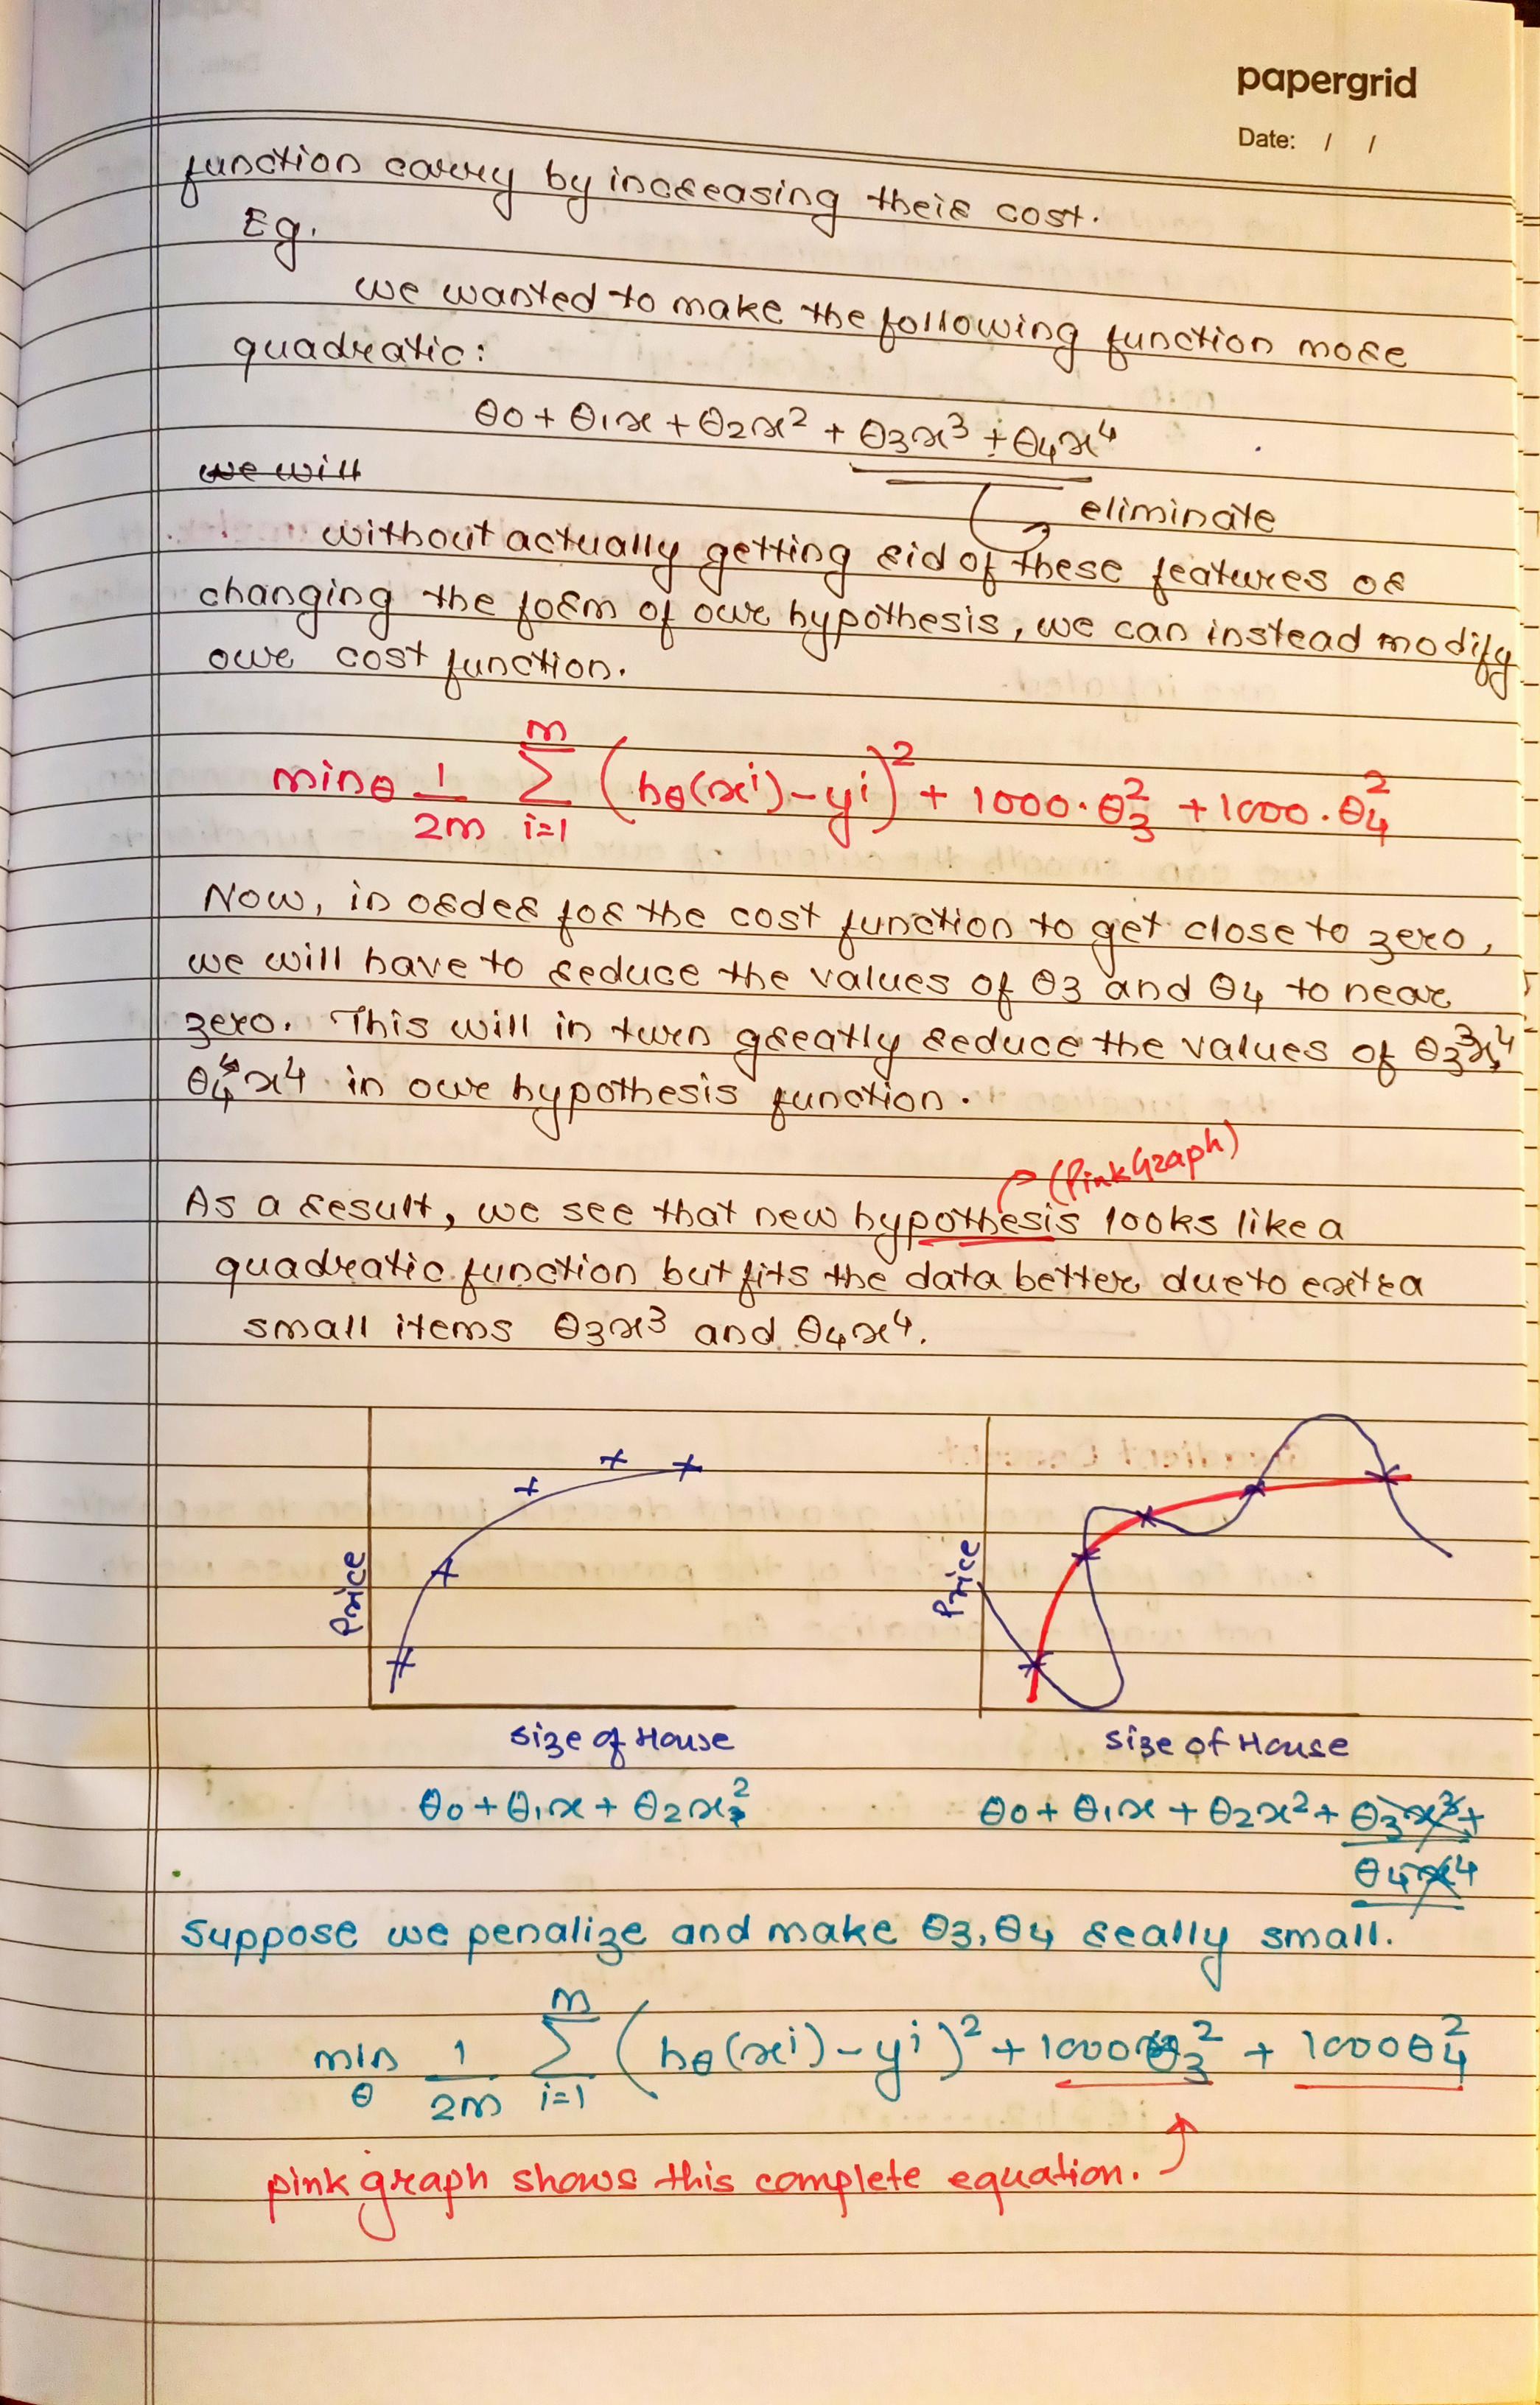 papergrid
Date: / /
function carry by increasing their cost.
Eg.
we wanted to make the following function more
quadratic:
θ0 + θ1x + θ2x² + θ3x³ + θ4x⁴
we will
eliminate
without actually getting rid of these features or
changing the form of our hypothesis, we can instead modify
our cost function.
minθ 1/2m Σ_{i=1}^{m} (hθ(xⁱ) - yⁱ)² + 1000·θ3² + 1000·θ4²
Now, in order for the cost function to get close to zero,
we will have to reduce the values of θ3 and θ4 to near
zero. This will in turn greatly reduce the values of
θ4x⁴ in our hypothesis function.
(Pink Graph)
As a result, we see that new hypothesis looks like a
quadratic function but fits the data better due to extra
small items θ3x³ and θ4x⁴.
Price
Price
size of House
size of House
θ0 + θ1x + θ2x²
θ0 + θ1x + θ2x² + θ3x³ +
θ4x⁴
Suppose we penalize and make θ3, θ4 really small.
min θ 1/2m Σ_{i=1}^{m} (hθ(xⁱ) - yⁱ)² + 1000θ3² + 1000θ4²
pink graph shows this complete equation.